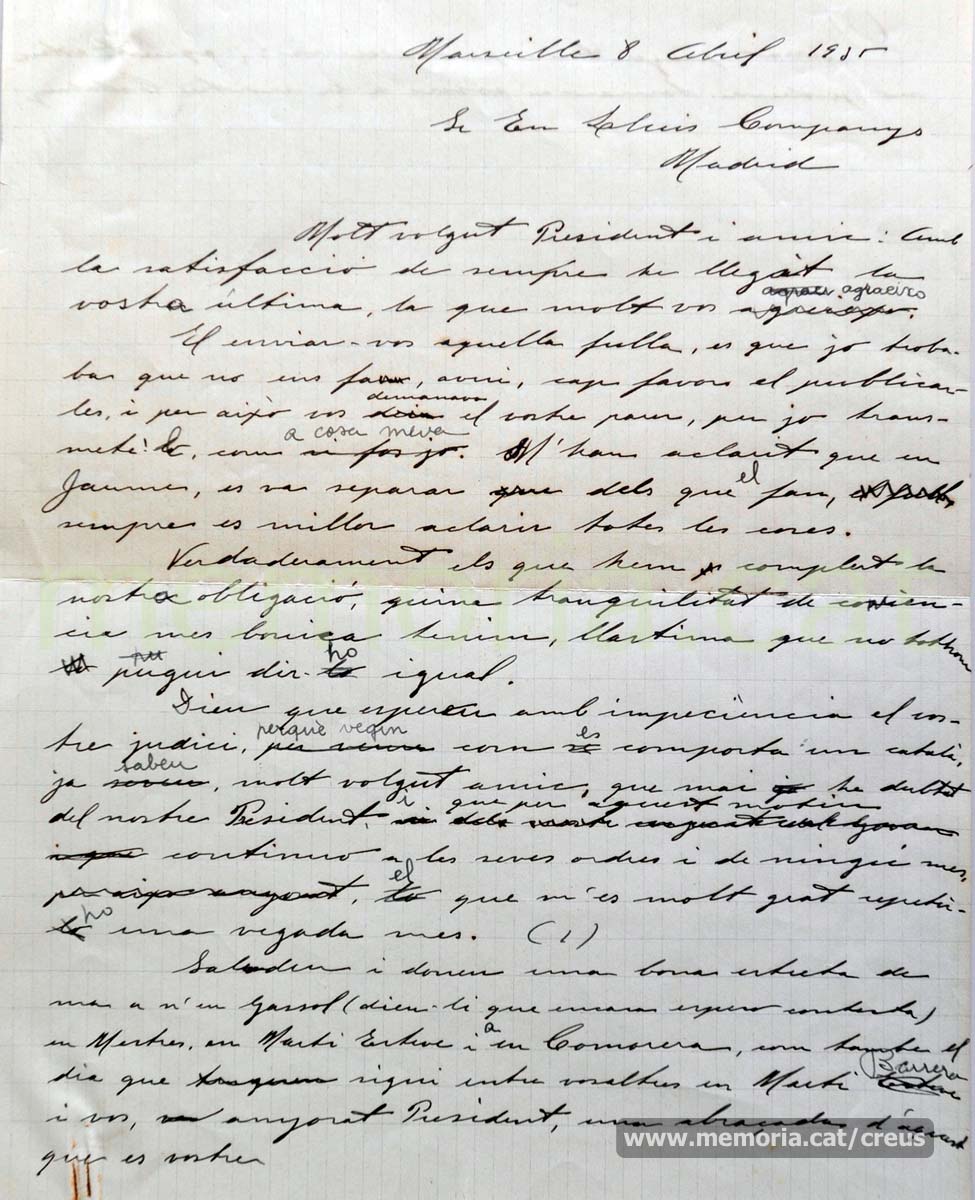 Marseille 8 Abril 1935
Sr En Lluis Companys
Madrid
Molt volgut President i amic: Amb
la satisfacció de sempre he llegit la
agraeixo
vostra última, la que molt vos
El enviar-vos aquella fulla, es que jo troba-
ba que no ens feia, avui, cap favor el publicar-
demanava
les, i per això vos deia el vostre parer, per jo trans-
a cosa meva
metè: lo, com si fos jo. M'han aclarit que en
el
Jaume, es va separar que dels que fan,
sempre es millor aclarir totes les coses.
Verdaderament els que hem complert la
nostra obligació, quina tranquilitat de concien-
cia mes bonica tenim, llastima que no tothom
ho
pugui dir-lo igual.
Dieu que espereu amb impeciència el vos-
perquè vegin es
tre judici, com se comporta un català,
sabeu
ja, molt volgut amic, que mai he dubtat
i que per aquest motiu
del nostre President,
continuo a les seves ordres i de ningú mes,
el
lo que m'es molt grat repetir-
ho
una vegada mes. (1)
Saludeu i doneu una bona estreta de
ma a n'en Gassol (dieu-li que encara espero contesta)
a
en Mestres, en Martí Esteve i en Comorera, com també el
Barrera
dia que sigui entre vosaltres en Martí Esteve
i vos, anyorat President, una abraçada d'aquest
que es vostre
www.memoria.cat/creus